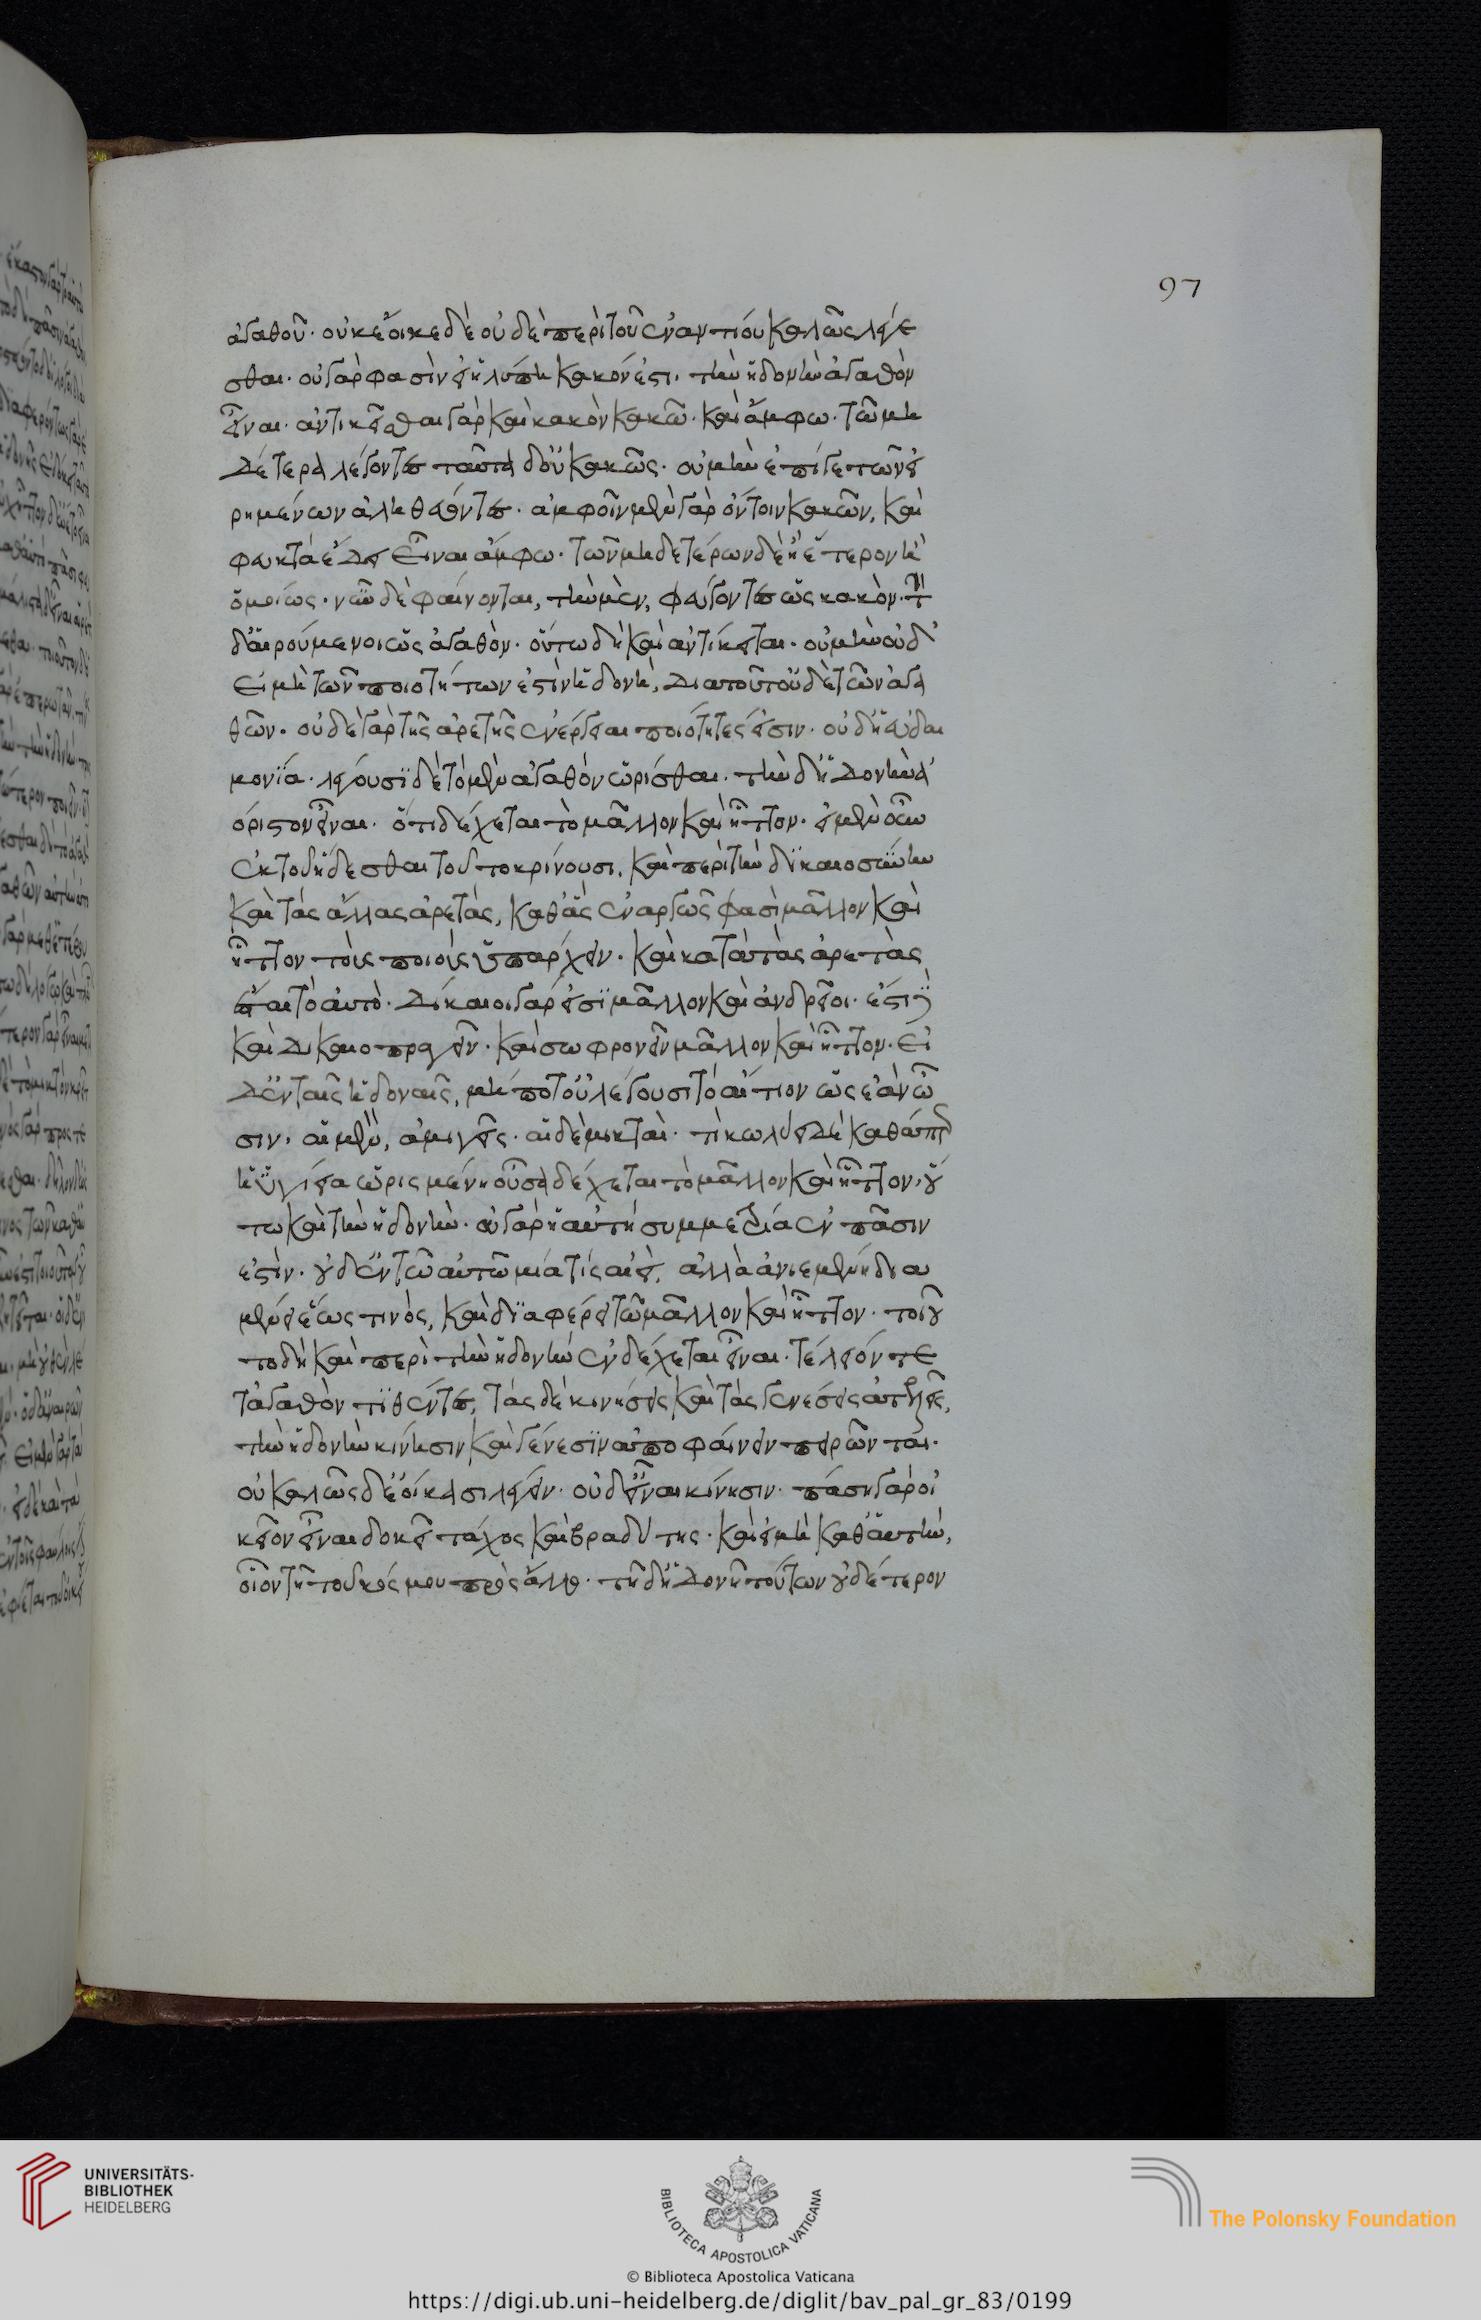 97
ἀγαθοῦ· οὐκ ἔοικε δὲ οὐδὲ περὶ τοῦ ἐναντίου καλῶς λέγε
σθαι· οὐ γὰρ φασὶν εἰ ἡ λύπη κακόν ἐστι, τὴν ἡδονὴν ἀγαθὸν
εἶναι· ἀντικεῖσθαι γὰρ καὶ κακὸν κακῶ· καὶ ἄμφω τῶ μη
δέτερα λέγοντες ταῦτα δ οὐ κακῶς· οὐ μὴν ἐπί γε τῶν εἰ
ρημένων ἀληθεύοντες· ἀμφοῖν μὲν γὰρ ὄντοιν κακῶν, καὶ
φευκτὰ ἔδει εἶναι ἄμφω· τῶν μηδετέρων δὲ ἢ ἕτερον ἢ
ὁμοίως· νῦν δὲ φαίνονται, τὴν μὲν, φεύγοντες ὡς κακὸν· τὴν
δ αἱρούμενοι ὡς ἀγαθὸν· οὕτω δὴ καὶ ἀντίκειται· οὐ μὴν οὐδ
εἰ μὴ τῶν ποιοτήτων ἐστὶν ἡ ἡδονὴ, διὰ τοῦτο οὐδὲ τῶν ἀγα
θῶν· οὐδὲ γὰρ τῆς ἀρετῆς ἐνέργειαι ποιότητές εἰσιν· οὐδ ἡ εὐδαι
μονία· λέγουσι δὲ τὸ μὲν ἀγαθόν ὡρίσθαι· τὴν δ ἡδονὴν ἀ
όριστον εἶναι· ὅτι δέχεται τὸ μᾶλλον καὶ ἧττον· εἰ μὲν οὖν
ἐκ τοῦ ἥδεσθαι τοῦτο κρίνουσι, καὶ περὶ τὴν δικαιοσύνην
καὶ τὰς ἄλλας ἀρετάς, καθ ἃς ἐναργῶς φασὶ μᾶλλον καὶ
ἧττον τοὺς ποιοὺς ὑπάρχειν· καὶ κατὰ τὰς ἀρετὰς
ἔσται τὸ αὐτὸ· δίκαιοι γάρ εἰσι μᾶλλον καὶ ἀνδρεῖοι· ἔστι δὲ
καὶ δικαιοπραγεῖν· καὶ σωφρονεῖν μᾶλλον καὶ ἧττον· εἰ
δ ἐν ταῖς ἡδοναῖς, μή ποτ οὐ λέγουσι τὸ αἴτιον ὡς ἐὰν ὦ
σιν, αἱ μὲν, ἀμιγεῖς· αἱ δὲ μικταὶ· τί κωλύει δὲ καθάπερ
ἡ ὑγίεια ὡρισμένη οὖσα δέχεται τὸ μᾶλλον καὶ ἧττον, οὕ
τω καὶ τὴν ἡδονὴν· οὐ γὰρ ἡ αὐτὴ συμμετρία ἐν πᾶσιν
ἐστὶν· οὐδ ἐν τῶ αὐτῶ μία τίς αἰεὶ, ἀλλὰ ἀνιεμένη δια
μένει ἕως τινὸς, καὶ διαφέρει τῶ μᾶλλον καὶ ἧττον· τοιοῦ
το δὴ καὶ περὶ τὴν ἡδονὴν ἐνδέχεται εἶναι· τέλειόν τε
τἀγαθὸν τιθέντες, τὰς δὲ κινήσεις καὶ τὰς γενέσεις ἀτελεῖς,
τὴν ἡδονὴν κίνησιν καὶ γένεσιν ἀποφαίνειν πειρῶνται·
οὐ καλῶς δὲ ἐοίκασι λέγειν· οὐδ εἶναι κίνησιν· πάση γὰρ οἰ
κεῖον εἶναι δοκεῖ τάχος καὶ βραδύτης· καὶ εἰ μὴ καθ αὑτὴν,
οἷον τῆ τοῦ κόσμου πρὸς ἄλλο· τῆ δ ἡδονῆ τούτων οὐδέτερον
UNIVERSITÄTS-
BIBLIOTHEK
HEIDELBERG
BIBLIOTECA APOSTOLICA VATICANA
© Biblioteca Apostolica Vaticana
The Polonsky Foundation
https://digi.ub.uni-heidelberg.de/diglit/bav_pal_gr_83/0199